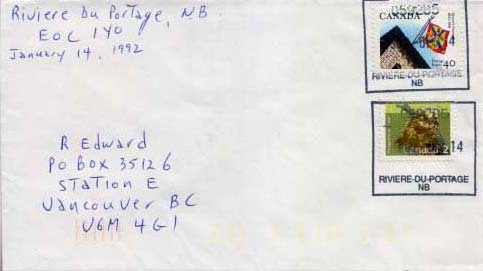 Riviere Du Portage, NB
EOC 1Y0
January 14, 1992
CANADA
40
14
RIVIERE-DU-PORTAGE
NB
Canada 2
14
RIVIERE-DU-PORTAGE
NB
R Edward
PO BOX 35126
STATION E
Vancouver BC
V6M 4G1